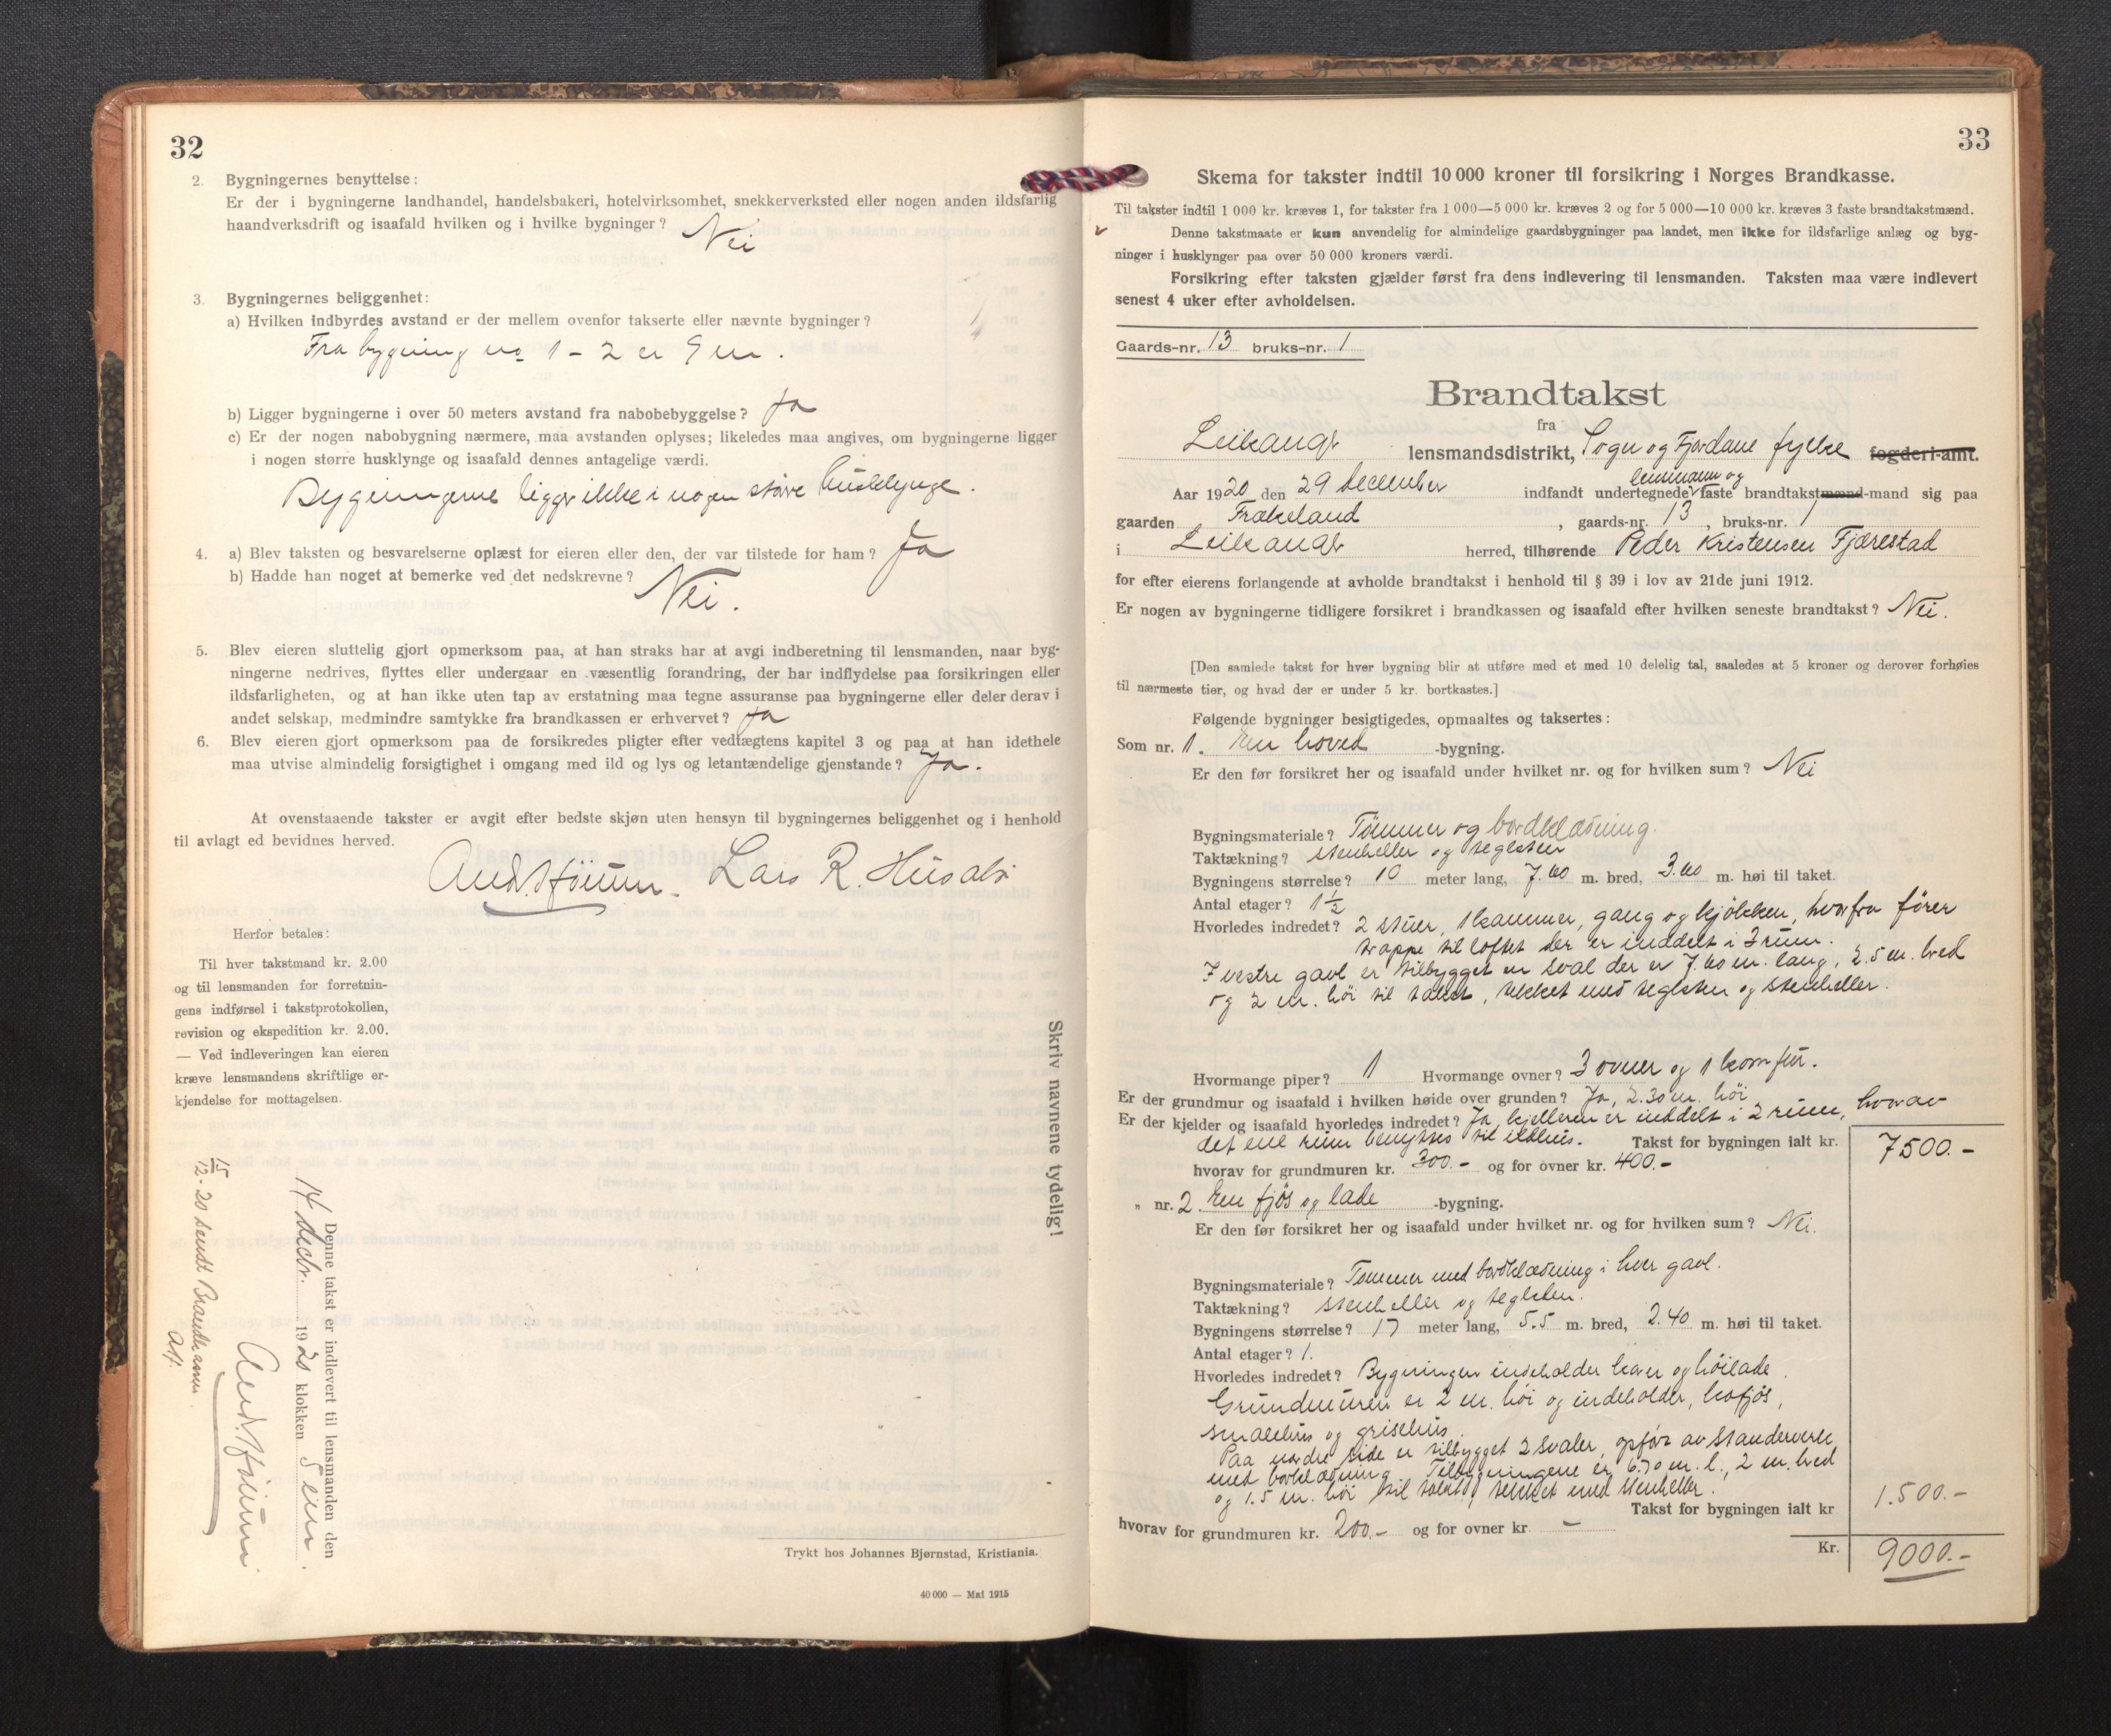 32
2. Bygningernes benyttelse:
Er der i bygningerne landhandel, handelsbakeri, hotelvirksomhet, snekkerverksted eller nogen anden ildsfarlig
haandverksdrift og isaafald hvilken og i hvilke bygninger? Nei
3. Bygningernes beliggenhet:
a) Hvilken indbyrdes avstand er der mellem ovenfor takserte eller nævnte bygninger?
Fra bygning no 1 - 2 er 9 m.
b) Ligger bygningerne i over 50 meters avstand fra nabobebyggelse? Ja
c) Er der nogen nabobygning nærmere, maa avstanden oplyses; likeledes maa angives, om bygningerne ligger
i nogen større husklynge og isaafald dennes antagelige værdi.
Bygningerne ligger ikke i nogen större husklynge.
4. a) Blev taksten og besvarelserne oplæst for eieren eller den, der var tilstede for ham? Ja
b) Hadde han noget at bemerke ved det nedskrevne? Nei.
5. Blev eieren sluttelig gjort opmerksom paa, at han straks har at avgi indberetning til lensmanden, naar byg-
ningerne nedrives, flyttes eller undergaar en væsentlig forandring, der har indflydelse paa forsikringen eller
ildsfarligheten, og at han ikke uten tap av erstatning maa tegne assuranse paa bygningerne eller deler derav i
andet selskap, medmindre samtykke fra brandkassen er erhvervet? Ja
6. Blev eieren gjort opmerksom paa de forsikredes pligter efter vedtægtens kapitel 3 og paa at han idethele
maa utvise almindelig forsigtighet i omgang med ild og lys og letantændelige gjenstande? Ja.
At ovenstaaende takster er avgit efter bedste skjøn uten hensyn til bygningernes beliggenhet og i henhold
til avlagt ed bevidnes herved.
Lars R. Husabø
Herfor betales:
Til hver takstmand kr. 2.00
og til lensmanden for forretnin-
gens indførsel i takstprotokollen,
revision og ekspedition kr. 2.00.
— Ved indleveringen kan eieren
kræve lensmandens skriftlige er-
kjendelse for mottagelsen.
Skriv navnene tydelig!
Denne takst er indlevert til lensmanden den
14 decbr. 1920 klokken 5 em.
15/12-20 sendt Brandkassen
Trykt hos Johannes Bjørnstad, Kristiania.
40 000 — Mai 1915
33
Skema for takster indtil 10 000 kroner til forsikring i Norges Brandkasse.
Til takster indtil 1 000 kr. kræves 1, for takster fra 1 000—5 000 kr. kræves 2 og for 5 000—10 000 kr. kræves 3 faste brandtakstmænd.
Denne takstmaate er kun anvendelig for almindelige gaardsbygninger paa landet, men ikke for ildsfarlige anlæg og byg-
ninger i husklynger paa over 50 000 kroners værdi.
Forsikring efter taksten gjælder først fra dens indlevering til lensmanden. Taksten maa være indlevert
senest 4 uker efter avholdelsen.
Gaards-nr. 13 bruks-nr. 1
Brandtakst
fra
Leikanger lensmandsdistrikt, Sogn og Fjordane fylke fogderi-amt.
lensmann og
Aar 1920 den 29 december indfandt undertegnede faste brandtakstmænd-mand sig paa
gaarden Frækeland, gaards-nr. 13, bruks-nr. 1
i Leikanger herred, tilhørende Peder Kristensen Fjærestad
for efter eierens forlangende at avholde brandtakst i henhold til § 39 i lov av 21de juni 1912.
Er nogen av bygningerne tidligere forsikret i brandkassen og isaafald efter hvilken seneste brandtakst? Nei.
[Den samlede takst for hver bygning blir at utføre med et med 10 delelig tal, saaledes at 5 kroner og derover forhøies
til nærmeste tier, og hvad der er under 5 kr. bortkastes.]
Følgende bygninger besigtigedes, opmaaltes og taksertes:
Som nr. 1. En hoved-bygning.
Er den før forsikret her og isaafald under hvilket nr. og for hvilken sum? Nei
Bygningsmateriale? Tømmer og bordklædning.
Taktækning? stenheller og teglsten
Bygningens størrelse? 10 meter lang, 7.60 m. bred, 3.60 m. høi til taket.
Antal etager? 1½
Hvorledes indredet? 2 stuer, 1 kammer, gang og kjökken, hvorfra fører
trappe til loftet der er inddelt i 3 rum.
I vestre gavl er tilbygget en sval der er 7.60 m. lang, 2.5 m. bred
og 2 m. höi til taket, tækket med teglsten og stenheller.
Hvormange piper? 1 Hvormange ovner? 3 ovner og 1 komfur.
Er der grundmur og isaafald i hvilken høide over grunden? Ja, 2.30 m. höi
Er der kjelder og isaafald hvorledes indredet? Ja, kjelleren er inddelt i 2 rum, hvorav
det ene rum benyttes til ildhus. Takst for bygningen ialt kr. 7500.-
hvorav for grundmuren kr. 300.- og for ovner kr. 400.-
„ nr. 2. En fjös og lade-bygning.
Er den før forsikret her og isaafald under hvilket nr. og for hvilken sum? Nei.
Bygningsmateriale? Tømmer med bordklædning i hver gavl.
Taktækning? stenheller og teglsten.
Bygningens størrelse? 17 meter lang, 5.5 m. bred, 2.40 m. høi til taket.
Antal etager? 1.
Hvorledes indredet? Bygningen indeholder løer og höilade.
Grundmuren er 2 m. höi og indeholder, kofjös,
smalehus og grisehus.
Paa nordre side er tilbygget 2 svaler, opført av standerverk
med bordklædning. Tilbygningene er 6.70 m. l., 2 m. bred
og 1.5 m. höi til taket, tækket med stenheller.
Takst for bygningen ialt kr 1.500.-
hvorav for grundmuren kr. 200.- og for ovner kr -
Kr. 9000.-